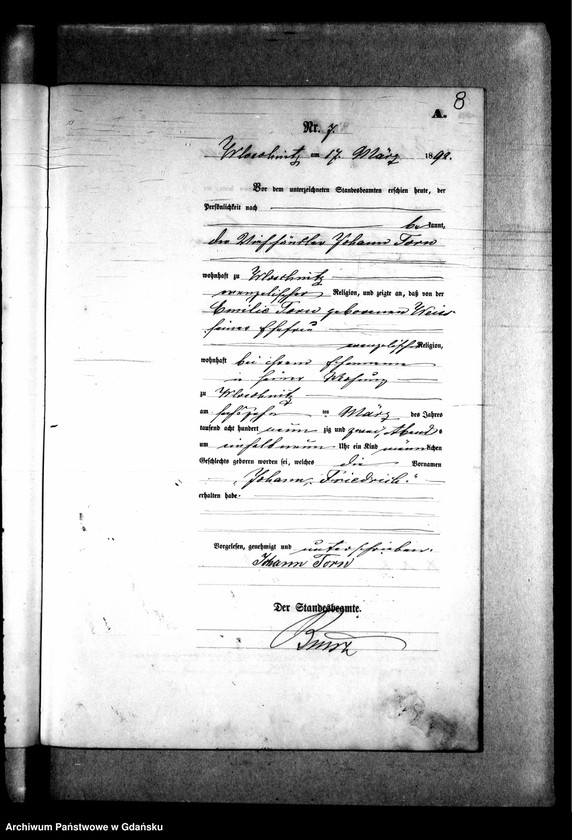 8
A.
Nr. 7.
am 17. März 1892.
Vor dem unterzeichneten Standesbeamten erschien heute, der
Persönlichkeit nach
be kannt,
der Johann Torn
wohnhaft zu
evangelischer Religion, und zeigte an, daß von der
Emilie Torn geborenen Weiss
seiner Ehefrau
evangelischer Religion,
wohnhaft bei ihrem Ehemanne
in seiner Wohnung
zu
am sechszehn ten März des Jahres
tausend acht hundert neun zig und zwei, Abends
um einhalb neun Uhr ein Kind männlichen
Geschlechts geboren worden sei, welches die Vornamen
„Johann, Friedrich"
erhalten habe.
Vorgelesen, genehmigt und unterschrieben.
Johann Torn
Der Standesbeamte.
Archiwum Państwowe w Gdańsku